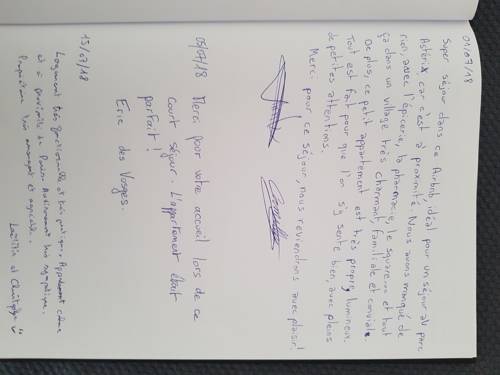 01/07/18
Super séjour dans ce Airbnb, idéal pour un séjour au parc
Astérix car c'est à proximité. Nous avons manqué de
rien, avec l'épicerie, la pharmacie, le square... et tout
ça dans un village très charmant, familiale et conviale.
De plus, ce petit appartement est très propre, lumineux.
Tout est fait pour que l'on s'y sente bien, avec pleins
de petites attentions.
Merci pour ce séjour, nous reviendrons avec plaisir!
05/07/18 Merci pour votre accueil lors de ce
court séjour. L'appartement était
parfait!
Eric des Vosges.
15/07/18
Logement très fonctionnelle et très pratique. Appartement calme
et à proximité du Parc
très sympathique.
Propriétaire très arrangeante et agréable.
Laëtitia et Christophe